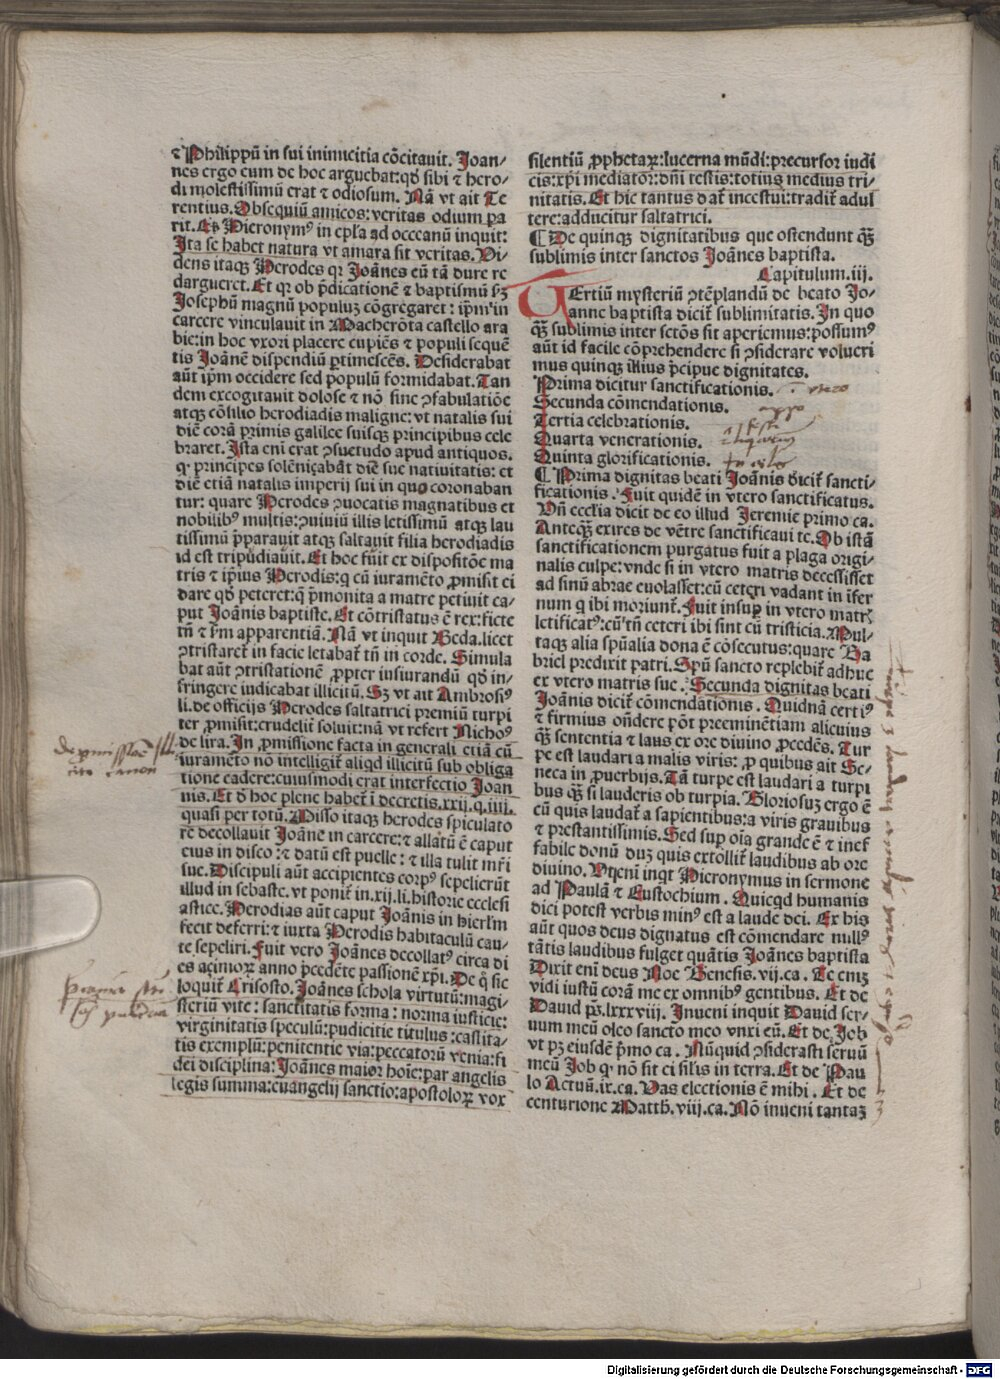 ⁊ Philippũ in sui inimicitia cõcitauit. Joan/
nes ergo eum de hoc arguebat:qđ sibi ⁊ hero/
di molestissimũ erat ⁊ odiosum. Nã vt ait Te
rentius. Obsequiũ amicos: veritas odium pa
rit. Et Hieronymꝰ in epl'a ad occeanũ inquit:
Ita se habet natura vt amara sit veritas. Vi/
dens itaqꝫ Herodes qꝛ Joãnes eũ tã dure re
dargueret. Et qꝛ ob p̃dicationẽ ⁊ baptismũ sꝫ
Josephũ magnũ populuꝫ cõgregaret: ip̃m in
carcere vinculauit in Macherõta castello ara
bie:in hoc vxori placere cupiẽs ⁊ populi sequẽ
tis Joãnẽ dispendiũ ꝑtimescẽs. Desiderabat
aũt ip̃m occidere sed populũ formidabat. Tan
dem excogitauit dolose ⁊ nõ sine ꝯfabulatiõe
atqꝫ cõsilio herodiadis maligne: vt natalis sui
diẽ corã primis galilee suisqꝫ principibus cele
braret. Ista eni erat ꝯsuetudo apud antiquos.
ꝙ principes solẽniçabãt diẽ sue natiuitatis: et
diẽ etiã natalis imperij sui in quo coronaban
tur: quare Herodes ꝯuocatis magnatibus et
nobilibꝰ multis:ꝯuiuiũ illis letissimũ atqꝫ lau
tissimũ p̃parauit atqꝫ saltauit filia herodiadis
id est tripudiauit. Et hoc fuit ex dispositõe ma
tris ⁊ ip̃ius Herodis:q cũ iuramẽto ꝓmisit ei
dare qđ peteret:q̃ p̃monita a matre petiuit ca/
put Joãnis baptiste. Et cõtristatus ẽ rex: ficte
tñ ⁊ s'm apparentiã. Nã vt inquit Beda. licet
ꝯtristaret̃ in facie letabat̃ tñ in corde. Simula
bat aũt ꝯtristationẽ ꝓpter iusiurandũ qđ in/
fringere iudicabat illicitũ. Sꝫ vt ait Ambrosiꝰ
li. de officijs Herodes saltatrici premiũ turpi
ter ꝓmisit: crudelit̃ soluit: nã vt refert Nichoꝰ
de lira. In ꝓmissione facta in generali etiã cũ
iuramẽto nõ intelligit̃ aliqd illicitũ sub obliga
tione cadere: cuiusmodi erat interfectio Joan
nis. Et đ hoc plene habet̃ i decretis. xxij. q. iiij.
quasi per totũ. Misso itaqꝫ herodes spiculato
re decollauit Joãne in carcere: ⁊ allatũ ẽ caput
eius in disco: ⁊ datũ est puelle: ⁊ illa tulit mr̃i
sue. Discipuli aũt accipientes corpꝰ sepelierũt
illud in sebaste. vt ponit̃ in. xij. li. historie ecclesi
astice. Herodias aũt caput Joãnis in hierl'm
fecit deferri: ⁊ iuxta Herodis habitaculũ cau/
te sepeliri. Fuit vero Joãnes decollatꝰ circa di
es açimoꝝ anno p̃cedẽte passionẽ xp̃i. De q̃ sic
loquit̃ Crisosto. Joãnes schola virtutũ: magi/
steriũ vite: sanctitatis forma: norma iusticie:
virginitatis speculũ: pudicitie titulus: castita/
tis exemplũ: penitentie via: peccatorũ venia: fi
dei disciplina: Joãnes maior hoi̇e: par angelis
legis summa: euangelij sanctio: apostoloꝝ vox
silentiũ ꝓphetaꝝ: lucerna mũdi: precursor iudi
cis: xp̃i mediator: dñi testis: totius medius tri/
nitatis. Et hic tantus dat̃ incestui: tradit̃ adul
tere: adducitur saltatrici.
¶ De quinqꝫ dignitatibus que ostendunt q̃ꝫ
sublimis inter sanctos Joãnes baptista.
Capitulum. iij.
TErtiũ mysteriũ ꝯtẽplandũ de beato Jo/
anne baptista dicit̃ sublimitatis. In quo
q̃ꝫ sublimis inter sctõs sit aperiemus: possumꝰ
aũt id facile cõprehendere si ꝯsiderare voluerí
mus quinqꝫ illius p̃cipue dignitates.
Prima dicitur sanctificationis.
Secunda cõmendationis.
Tertia celebrationis.
Quarta venerationis.
Quinta glorificationis.
¶ Prima dignitas beati Joãnis dicit̃ sancti/
ficationis. Fuit quidẽ in vtero sanctificatus.
Vñ ecclia dicit de eo illud Jeremie primo ca.
Anteqꝫ exires de vẽtre sanctificaui te. Ob istã
sanctificationem purgatus fuit a plaga origi/
nalis culpe: vnde si in vtero matris decessisset
ad sinũ abrae euolasset: cũ ceteri vadant in ĩfer
num q ibi moriunt̃. Fuit insuꝑ in vtero matrꝭ
letificatꝰ: cũ tñ ceteri ibi sint cũ tristicia. Mul/
taqꝫ alia spũalia dona ẽ cõsecutus: quare Ga
briel predixit patri. Spũ sancto replebit̃ adhuc
ex vtero matris sue. Secunda dignitas beati
Joãnis dicit̃ cõmendationis. Quidnã certiꝰ
⁊ firmius oñdere põt preeminẽtiam alicuius
q̃ꝫ sententia ⁊ laus ex ore diuino ꝓcedẽs. Tur
pe est laudari a malis viris: ꝓ quibus ait Se/
neca in ꝓuerbijs. Tã turpe est laudari a turpi
bus q̃ꝫ si lauderis ob turpia. Gloriosuꝫ ergo ẽ
cũ quis laudat̃ a sapientibus: a viris grauibus
⁊ prestantissimis. Sed suꝑ oi̇a grande ẽ ⁊ inef
fabile donũ duꝫ quis extollit̃ laudibus ab ore
diuino. Vt̃eni inqt Hieronymus in sermone
ad Paulã ⁊ Eustochium. Quicqd humanis
dici potest verbis minꝰ est a laude dei. Ex his
aũt quos deus dignatus est cõmendare nullꝰ
tãtis laudibus fulget quãtis Joãnes baptista
Dixit eni deus Noe Genesis. vij. ca. Te eniꝫ
vidi iustũ corã me ex omnibꝰ gentibus. Et de
Dauid pš. lxxxviij. Inueni inquit Dauid ser/
uum meũ oleo sancto meo vnxi eũ. Et de Job
vt pꝫ eiusdẽ p̃mo ca. Nũquid ꝯsiderasti seruũ
meũ Job ꝙ nõ sit ei silis in terra. Et de Pau
lo Actuũ. ix. ca. Vas electionis ẽ mihi. Et de
centurione Matth. viij. ca. Nõ inueni tantaꝫ
Digitalisierung gefördert durch die Deutsche Forschungsgemeinschaft - DFG